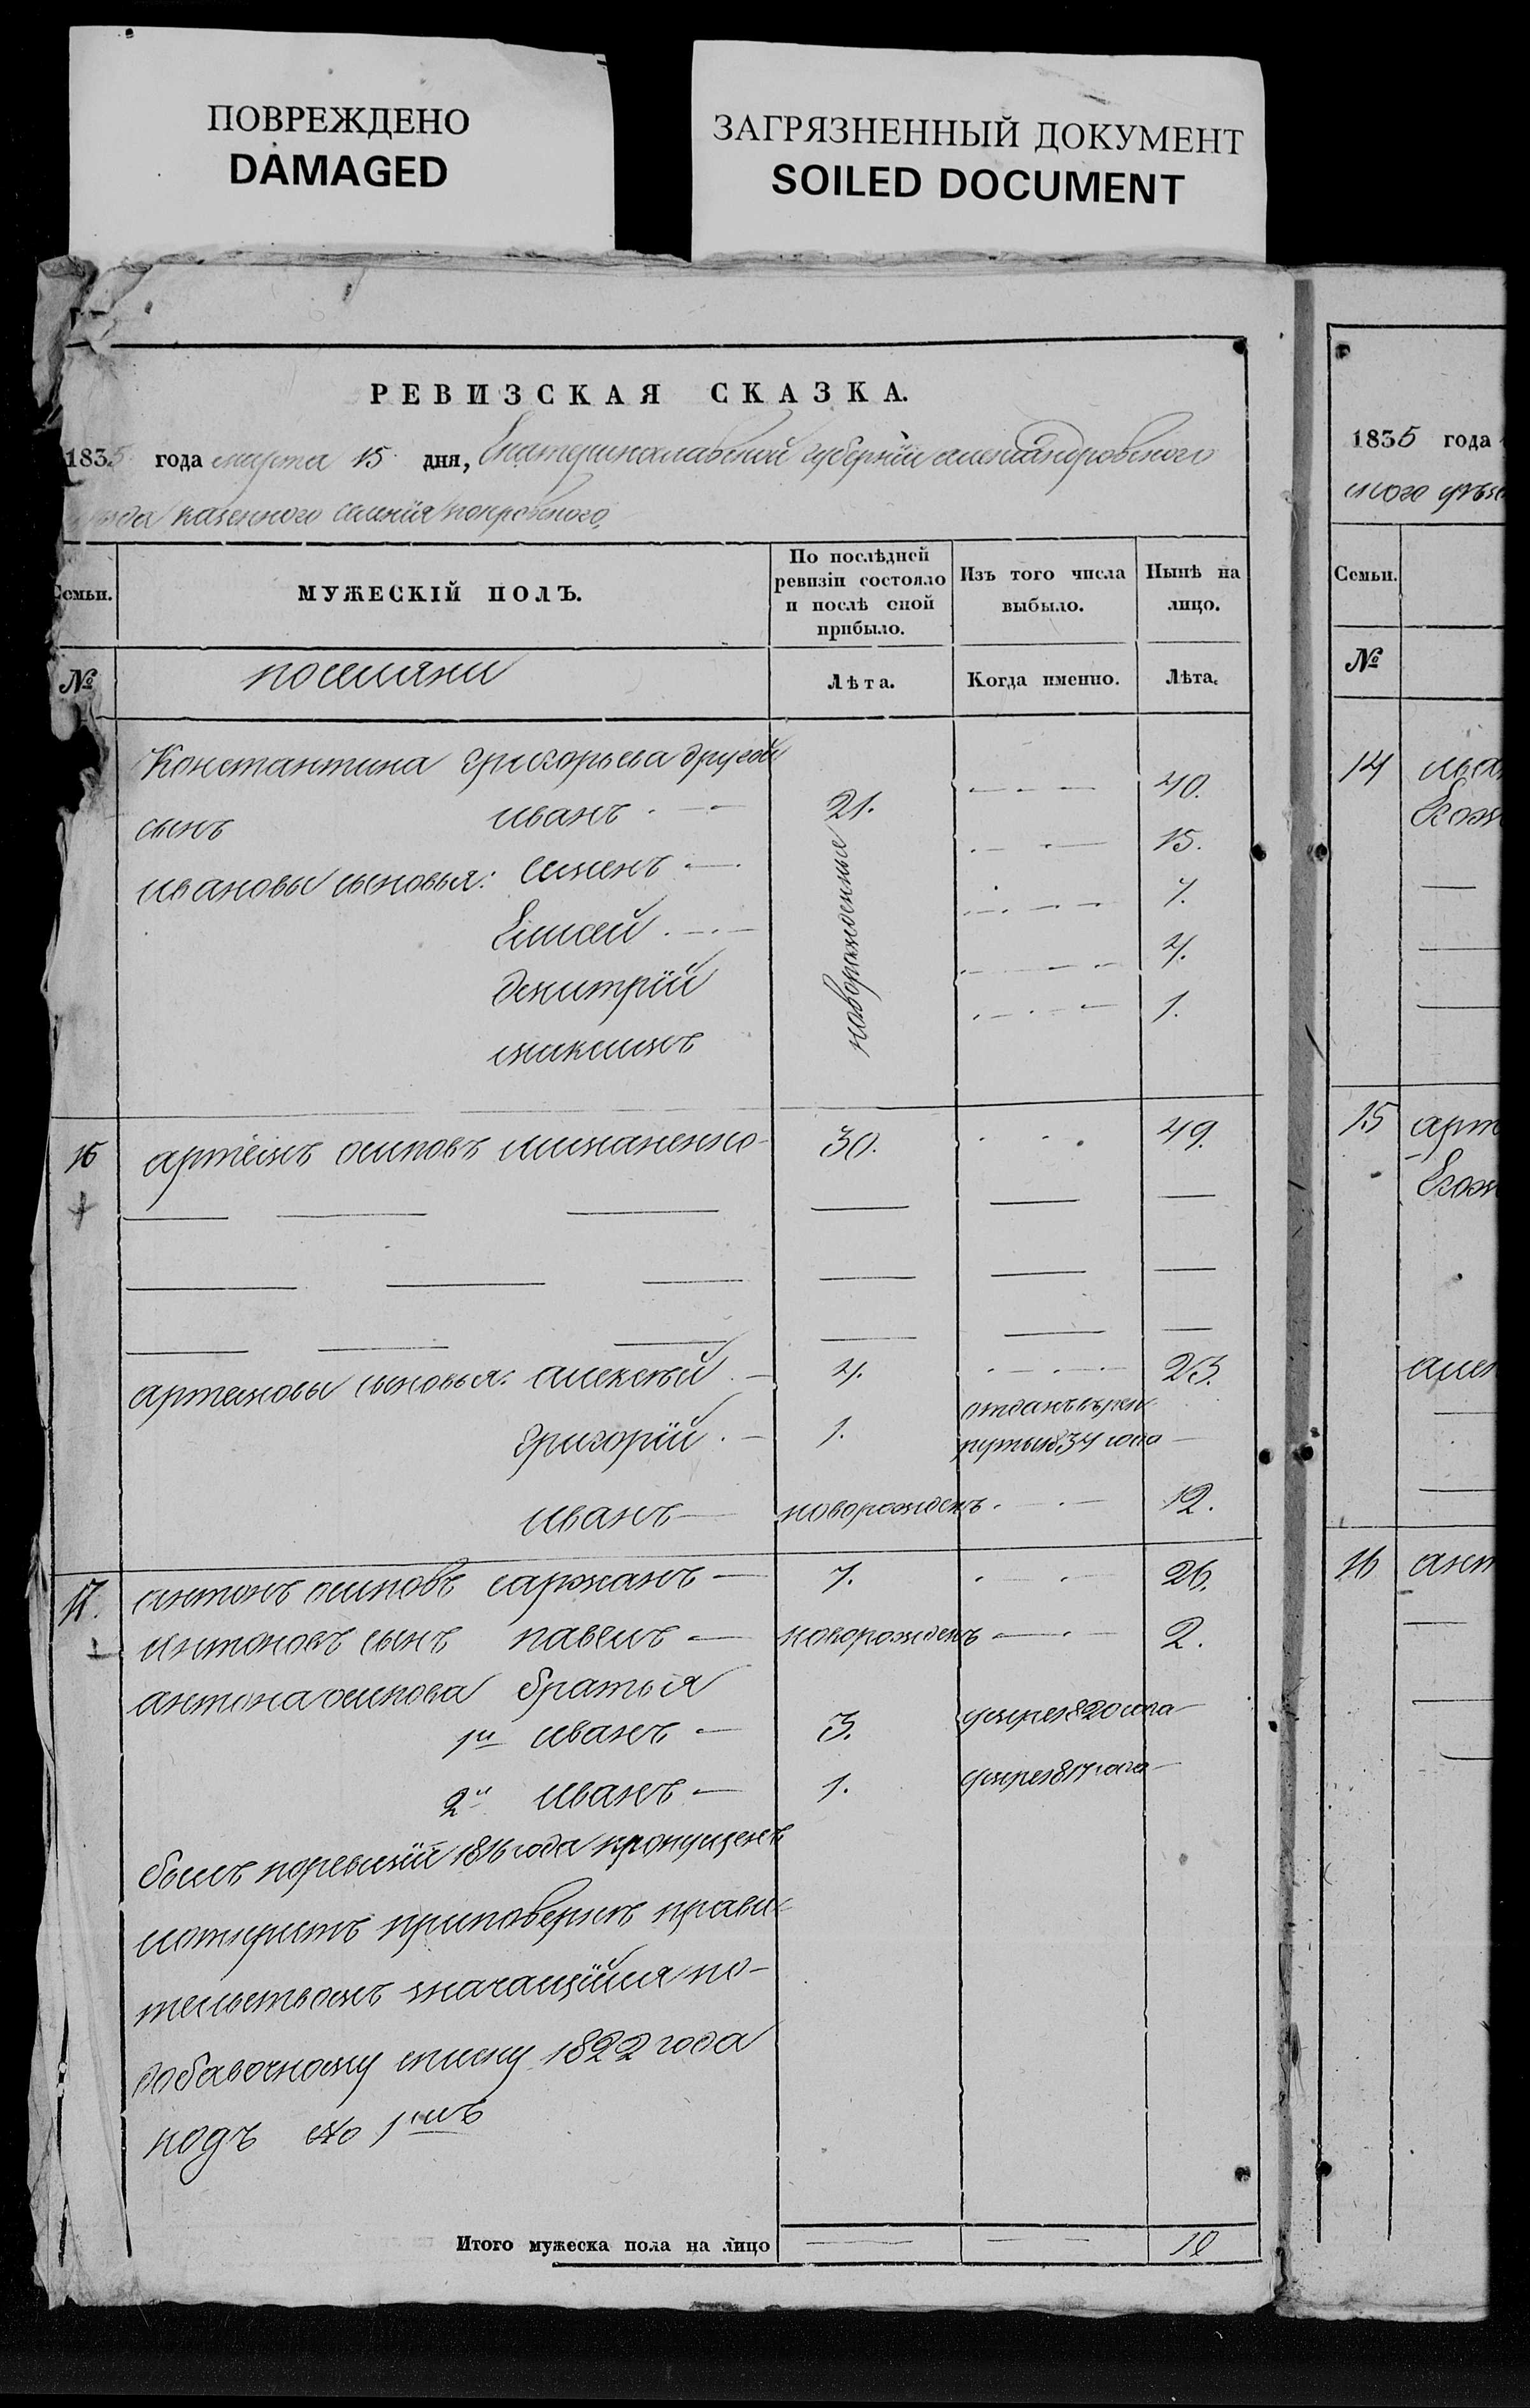 ПОВРЕЖДЕНО
DAMAGED
ЗАГРЯЗНЕННЫЙ ДОКУМЕНТ
SOILED DOCUMENT
РЕВИЗСКАЯ СКАЗКА.
1835 года марта 15 дня, Екатеринославской губернїи александровского
казенного селенїя покровского
Семьи.
МУЖЕСКІЙ ПОЛЪ.
По послѣдней ревизіи состояло и послѣ оной прибыло.
Изъ того числа выбыло.
Нынѣ на лицо.
№
поселяни
Лѣта.
Когда именно.
Лѣта.
Константина григорьева другой
сынъ иванъ 21. 40.
ивановы сыновья: семенъ 15.
новорожденные
Елисей 7.
дмитрїй 4.
максимъ 1.
16 артемъ осиповъ 30. 49.
артемовы сыновья: алексей 4. 23.
григорїй 1. отданъ въ рек
руты 834 года
иванъ новорожденъ 12.
17. антонъ осиповъ саржанъ 7. 26.
антоновъ сынъ павелъ новорожденъ 2.
антона осипова братья
1й иванъ 3. умре 1820 года
2й иванъ 1. умре 1817 года
былъ по ревизїй 1816 года пропущенъ
прави-
тельствомъ значащїйся по-
добавочному списку 1822 года
подъ № 1мъ
Итого мужеска пола на лицо 10
1835 года
Семьи.
№
14
15 арт
16 ант